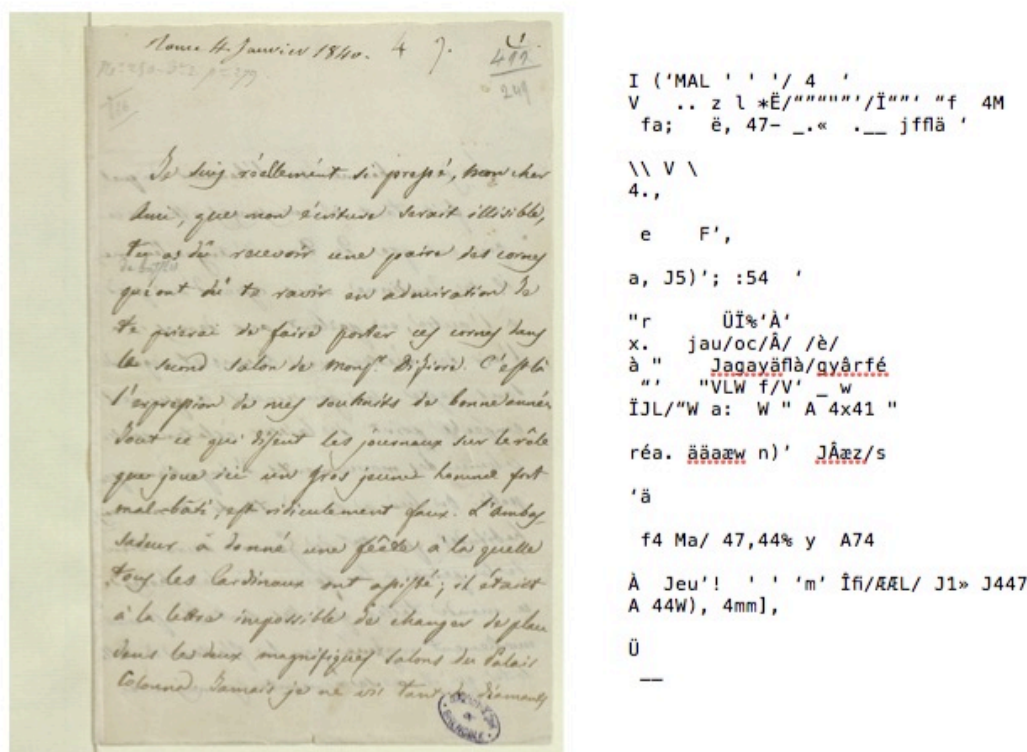 Rome 4. Janvier 1840. 4 7.
249
Je suis réellement si pressé, mon cher
Ami, que mon écriture serait illisible,
tu as dû recevoir une paire des cornes
de buffles
qui ont dû te ravir en admiration Je
te prierai de faire porter ces cornes dans
le second salon de Monsr. Difiore. C'est là
l'expression de mes souhaits de bonne année
Tout ce qui disent les journaux sur le rôle
que joue ici un gros jeune homme fort
mal-bâti, est ridiculement faux. L'ambas
sadeur a donné une fête à la quelle
tous les Cardinaux ont assisté; il était
à la lettre impossible de changer de place
dans les deux magnifiques salons du Palais
Colonna Jamais je ne vis tant de diamants
GRENOBLE
I (‘MAL ' ' '/ 4 ‘
V .. z l *Ë/“”“”“”’/Ï“”‘ “f 4M
fa; ë, 47– _.« .__ jfflä ‘
\\ V \
4.,
e F’,
a, J5)’; :54 ‘
"r ÜÏ%‘À‘
x. jau/oc/Â/ /è/
à " Jagayäflà/gyârfé
“’ "VLW f/V‘ _ w
ÏJL/“W a: W " A 4x41 "
réa. ääaæw n)’ JÂæz/s
‘ä
f4 Ma/ 47,44% y A74
À Jeu’! ' ' ‘m’ Îfi/ÆÆL/ J1» J447
A 44W), 4mm],
Ü
__